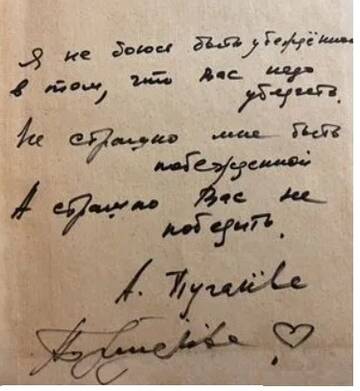 Я не боюсь быть убеждённой
в том, что Вас надо
убедить.
Не страшно мне быть
побежденной
А страшно Вас не
победить.
А. Пугачёве